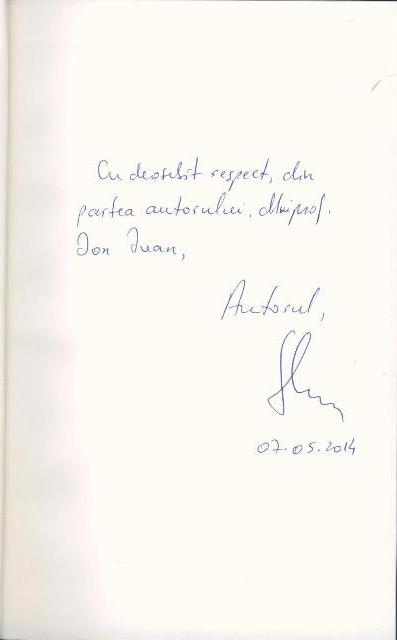 Cu deosebit respect, din
partea autorului,
Ion Ivan,
Autorul,
07.05.2014